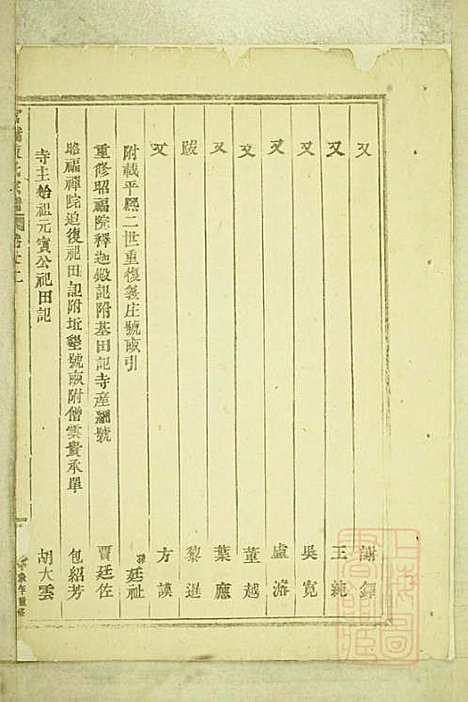 又 謝鐸
又 王純
又 吳寬
又 盧濬
又 董越
又 葉應
跋 黎暹
又 方謨
附載平熙二世重復義庄號畝引 孫廷祉
重修昭福院釋迦殿記附基田記寺產細號 賈廷佐
昭福禪院追復祀田記附坵墾號畝附僧雲貴承單 包紹芳
寺主始祖元寶公祀田記 胡大雲
氏宗譜 卷之二